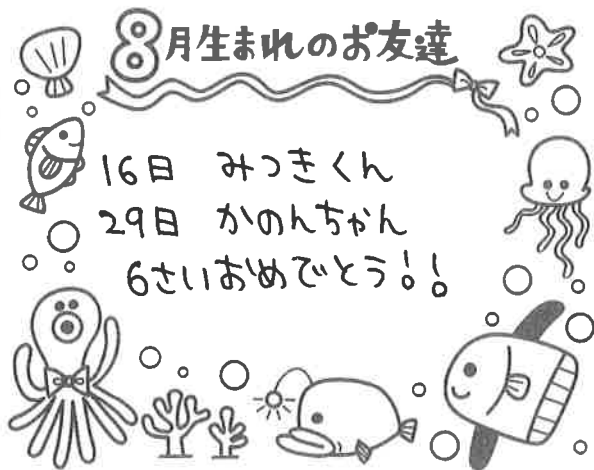 8月生まれのお友達
16日 みつきくん
29日 かのんちゃん
6さいおめでとう!!